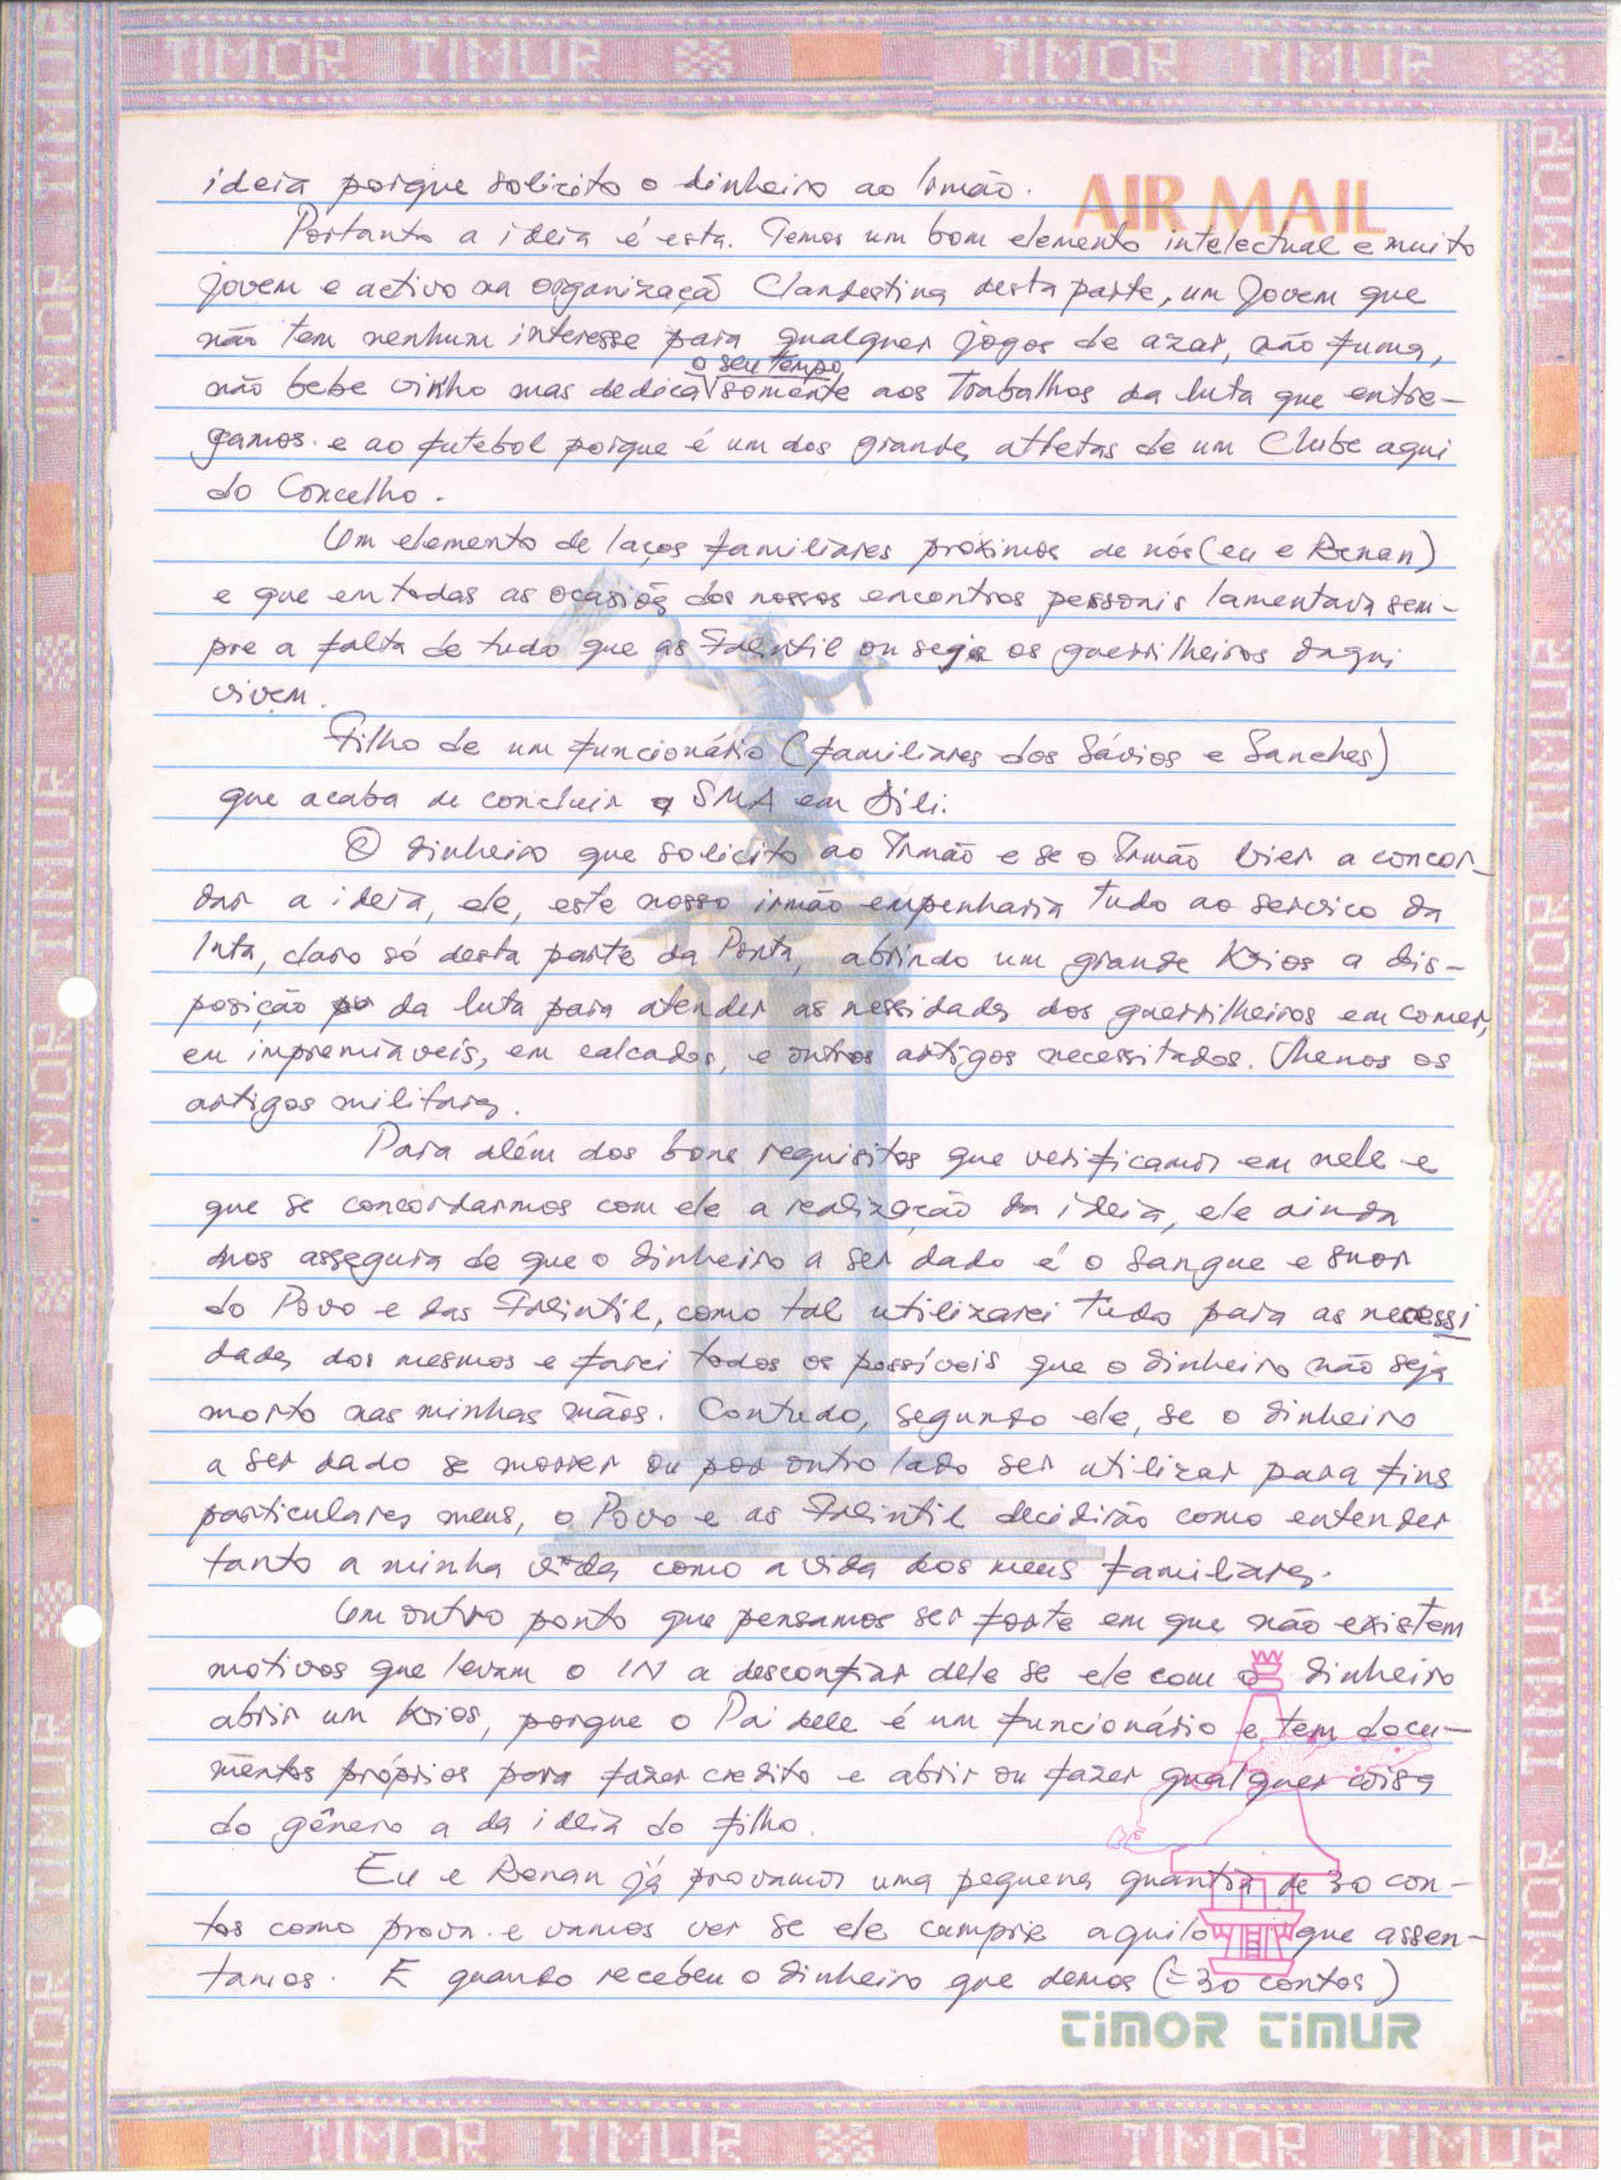 TIMOR TIMUR TIMOR TIMUR
AIR MAIL
ideia porque solicito o dinheiro ao Irmão.
Portanto a ideia é esta. Temos um bom elemento intelectual e muito
jovem e activo na organização Clandestina desta parte, um jovem que
não tem nenhum interesse para qualquer jogos de azar, não fuma,
não bebe vinho mas dedica o seu tempo somente aos Trabalhos da luta que entre-
gamos e ao futebol porque é um dos grandes atletas de um Clube aqui
do Concelho.
Um elemento de laços familiares próximos de nós (eu e Renan)
e que em todas as ocasiões dos nossos encontros pessoais lamentava sem-
pre a falta de tudo que as Falintil ou seja os guerrilheiros daqui
vivem.
Filho de um funcionário (familiares dos Sávios e Sanches)
que acaba de concluir a SMA em Díli.
O dinheiro que solicito ao Irmão e se o Irmão vier a concor-
dar a ideia, ele, este nosso irmão empenharia tudo ao serviço da
luta, claro só desta parte da Ponta, abrindo um grande Kios a dis-
posição da luta para atender as nessidades dos guerrilheiros em comer,
em impremiaveis, em calcados, e outros artigos necessitados. Menos os
artigos militares.
Para além dos bons requisitos que verificamos em nele e
que se concordarmos com ele a realização da ideia, ele ainda
nos assegura de que o dinheiro a ser dado é o Sangue e suor
do Povo e das Falintil, como tal utilizarei tudo para as necessi
dades dos mesmos e farei todos os possíveis que o dinheiro não seja
morto nas minhas mãos. Contudo, segundo ele, se o dinheiro
a ser dado se morrer ou por outro lado ser utilizar para fins
particulares meus, o Povo e as Falintil decidirão como entender
tanto a minha vida como a vida dos meus familiares.
Um outro ponto que pensamos ser forte em que não existem
motivos que levam o IN a desconfiar dele se ele com o dinheiro
abrir um Kios, porque o Pai dele é um funcionário e tem docu-
mentos próprios para fazer credito e abrir ou fazer qualquer coisa
do gênero a da ideia do filho.
Eu e Renan já provamos uma pequena quantia de 30 con-
tos como prova e vamos ver se ele cumpre aquilo que assen-
tamos. E quando recebeu o dinheiro que demos (= 30 contos)
TIMOR TIMUR
TIMOR TIMUR TIMOR TIMUR